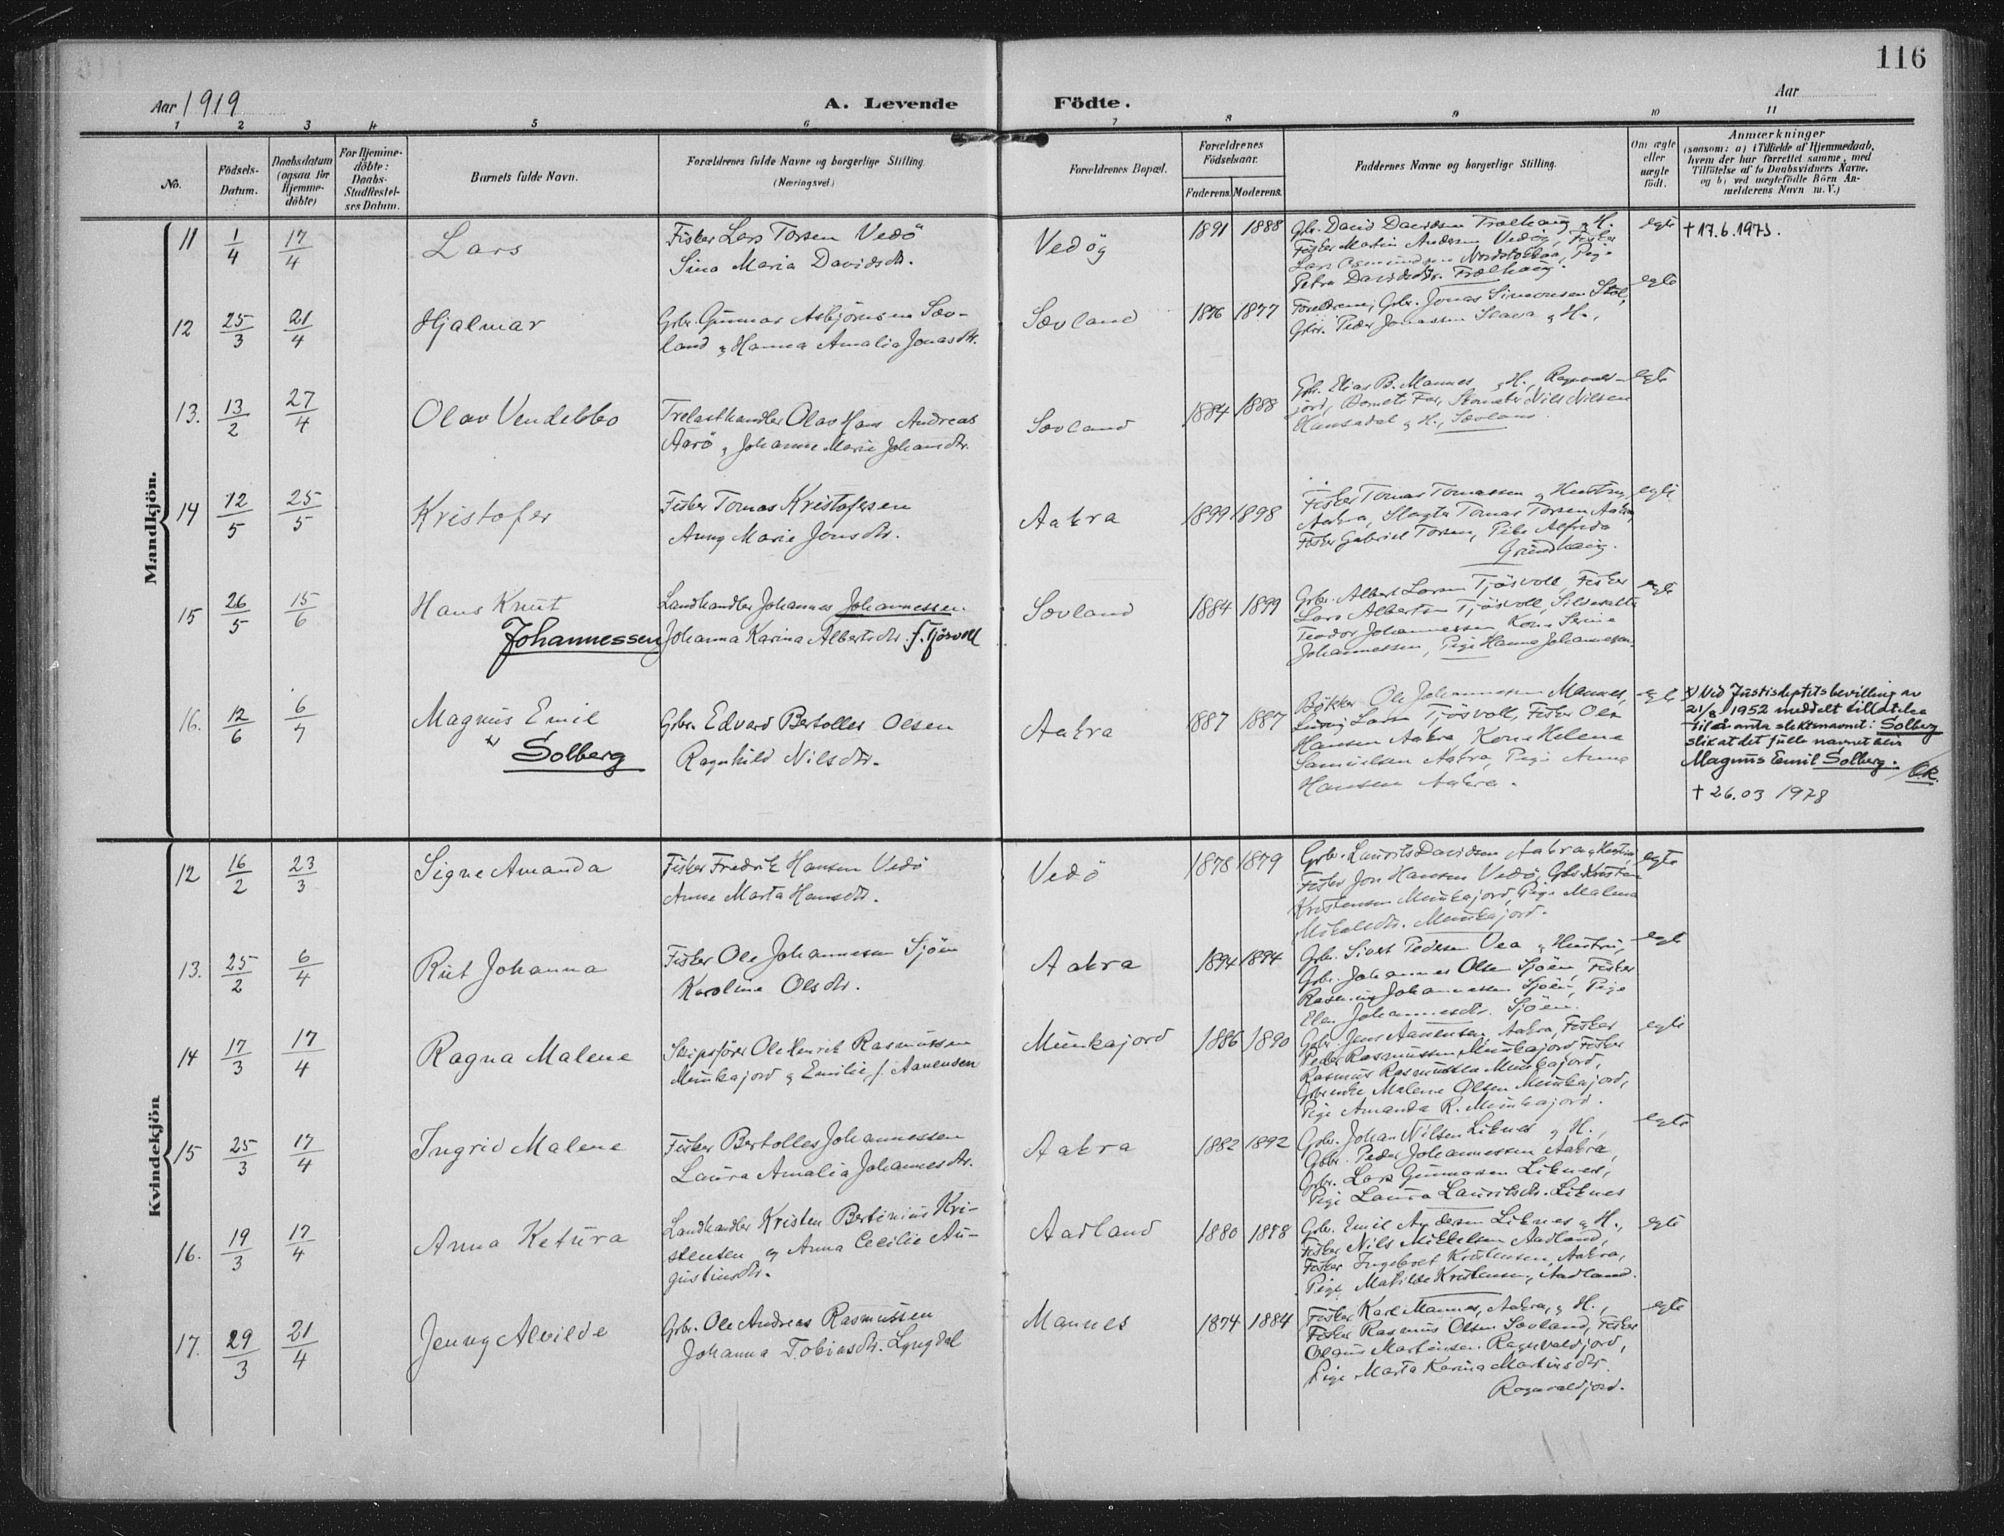 116
Aar 1919
A. Levende Födte.
Aar
1 2 3 4 5 6 7 8 9 10 11
No.
Födsels-Datum.
Daabsdatum (ogsaa for Hjemme-döbte)
For Hjemme-döbte: Daabs-Stadfestel-ses Datum.
Barnets fulde Navn.
Forældrenes fulde Navne og borgerlige Stilling (Næringsvei.)
Forældrenes Bopæl.
Forældrenes Födselsaar.
Faderens. Moderens.
Faddernes Navne og borgerlige Stilling.
Om ægte eller uægte født.
Anmærkninger
(saasom: a) i Tilfælde af Hjemmedaab, hvem der har forrettet samme, med Tilföielse af to Daabsvidners Navne, og b) ved uægtefödte Börn An-melderens Navn m. V.)
Mandkjön.
11 1/4 17/4 Lars
Fisker Lars Torsen Vedö
Sina Maria Davidsdtr.
Vedög 1891 1888
Gbr. David Davidsen Trælhaug & H.
Fisker Martin Andersen Vedøy, Fisker
Lars Osmundsen Nordstokke, Pige
Petra Davidsdtr. Trælhaug.
egte
† 17.6.1973.
12 25/3 21/4 Hjalmar
Grbr. Gunnar Asbjörnsen Sæv-
land & Hanna Amalia Jonasdtr.
Sævland 1876 1877
Foreldrene, Grbr. Jonas Simonsen Stol,
Grbr. Peder Jonassen Slava & H.,
egte
13. 13/2 27/4 Olav Vendelbo
Trelasthandler Olav Hans Andreas
Aarö & Johanne Marie Johansdtr.
Sævland 1884 1888
Gbr. Elias B. Mannes & H., Ragvald-
jord, Barnets Far, Nils Nilsen
Hansadal & H., Sævland
egte
14 12/5 25/5 Kristofer
Fisker Tomas Kristofersen
Anny Marie Jonsdtr.
Aakra 1899 1898
Fisker Tomas Tomassen & Hustru,
Aakra, Slagter Tomas Torsen Aakra,
Fisker Gabriel Torsen, Pike Alfreda
Grindhaug.
egte
15 26/5 15/6 Hans Knut
Johannessen
Landhandler Johannes Johannessen
Johanna Karina Albertsdtr. f. Tjösvoll
Sævland 1884 1899
Grbr. Albert Larsen Tjösvoll, Fisker
Lars Albertsen Tjösvoll, Sildesalter
Teodor Johannessen Kona Serine
Johannessen, Pige Hanna Johannessen.
egte
16. 12/6 6/7 Magnus Emil
x) Solberg
Grbr. Edvard Bertolles Olsen
Ragnhild Nilsdtr.
Aakra 1887 1887
Bökker Ole Johannessen Mannes,
Ludvig Larsen Tjösvoll, Fisker Ole
Hansen Aakra, Kona Helena
Samuelsen Aakra, Pige Anna
Hansen Aakra.
egte
x) Ved Justisdeptets bevilling av
21/8 1952 meddelt tillatelse
til å anta slektsnavnet: Solberg
slik at det fulle navnet blir
Magnus Emil Solberg.
† 26.03 1978
Kvindekjön
12 16/2 23/3 Signe Amanda
Fisker Fredrik Hansen Vedö
Anne Marta Hansdtr.
Vedö 1878 1879
Grbr. Laurits Davidsen Aakra & Hustru,
Fisker Jon Hansen Vedö, Gbr. Kristian
Kristensen Munkajord, Pige Malena
Mikalsdtr. Munkajord.
egte
13. 25/2 6/4 Rut Johanna
Fisker Ole Johannessen Sjöen
Karoline Olsdtr.
Aakra 1894 1894
Grbr. Sivert Pedersen Vea & Hustru,
Grbr. Johannes Olsen Sjöen, Fisker
Rasmus Johannessen Sjöen, Pige
Elen Johannesdtr. Sjöen.
egte
14 17/3 17/4 Ragna Malene
Skipsförer Ole Henrik Rasmussen
Munkajord & Emilie, f. Aanensen
Munkajord 1886 1890
Grbr. Jens Aanensen, Aakra, Fisker
Peder Rasmussen Munkajord, Fisker
Rasmus Rasmussen Munkajord,
Grbrenke Malene Olsen Munkajord,
Pige Amanda R. Munkajord.
egte
15 25/3 17/4 Ingrid Malene
Fisker Bertolles Johannessen
Laura Amalia Johannesdtr.
Aakra 1882 1892
Grbr. Johan Nilsen Liknes & H.,
Gbr. Peder Johannessen Aakra,
Grbr. Lars Gunnarsen Liknes,
Pige Laura Lauritsdtr. Liknes
egte
16. 19/3 17/4 Anna Ketura
Landhandler Kristen Bertinius Kri-
stensen og Anna Cecilie Au-
gustinsdtr.
Aadland 1880 1878
Grbr. Emil Andersen Liknes & H.,
Fisker Nils Mikkelsen Aadland,
Fisker Ingebret Kristensen, Aakra,
Pige Matilde Kristensen, Aadland.
egte
17. 29/3 21/4 Jenny Alvilde
Grbr. Ole Andreas Rasmussen
Johanna Tobiasdtr. Lyngdal
Mannes 1874 1884
Fisker Karl Mannes, Aakra, & H.,
Fisker Rasmus Olsen Sævland, Fisker
Olaus Martinsen Ragnvaldjord,
Pige Marta Karina Martinsdtr.
Ragnvaldjord.
egte